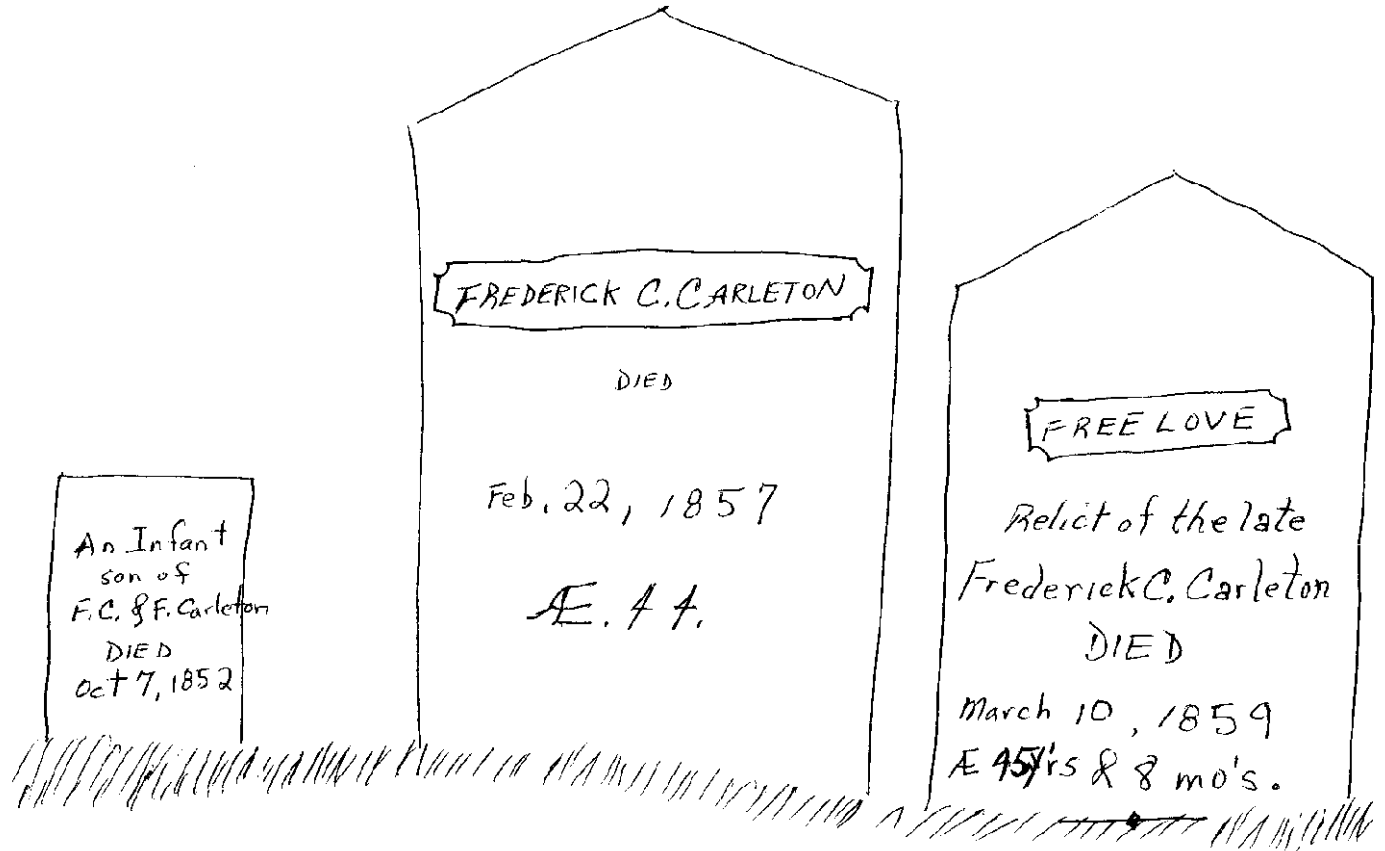 An Infant
son of
F.C. & F. Carleton
DIED
Oct 7, 1852
FREDERICK C. CARLETON
DIED
Feb. 22, 1857
Æ. 44.
FREE LOVE
Relict of the late
Frederick C. Carleton
DIED
March 10, 1859
Æ 45 y'rs & 8 mo's.